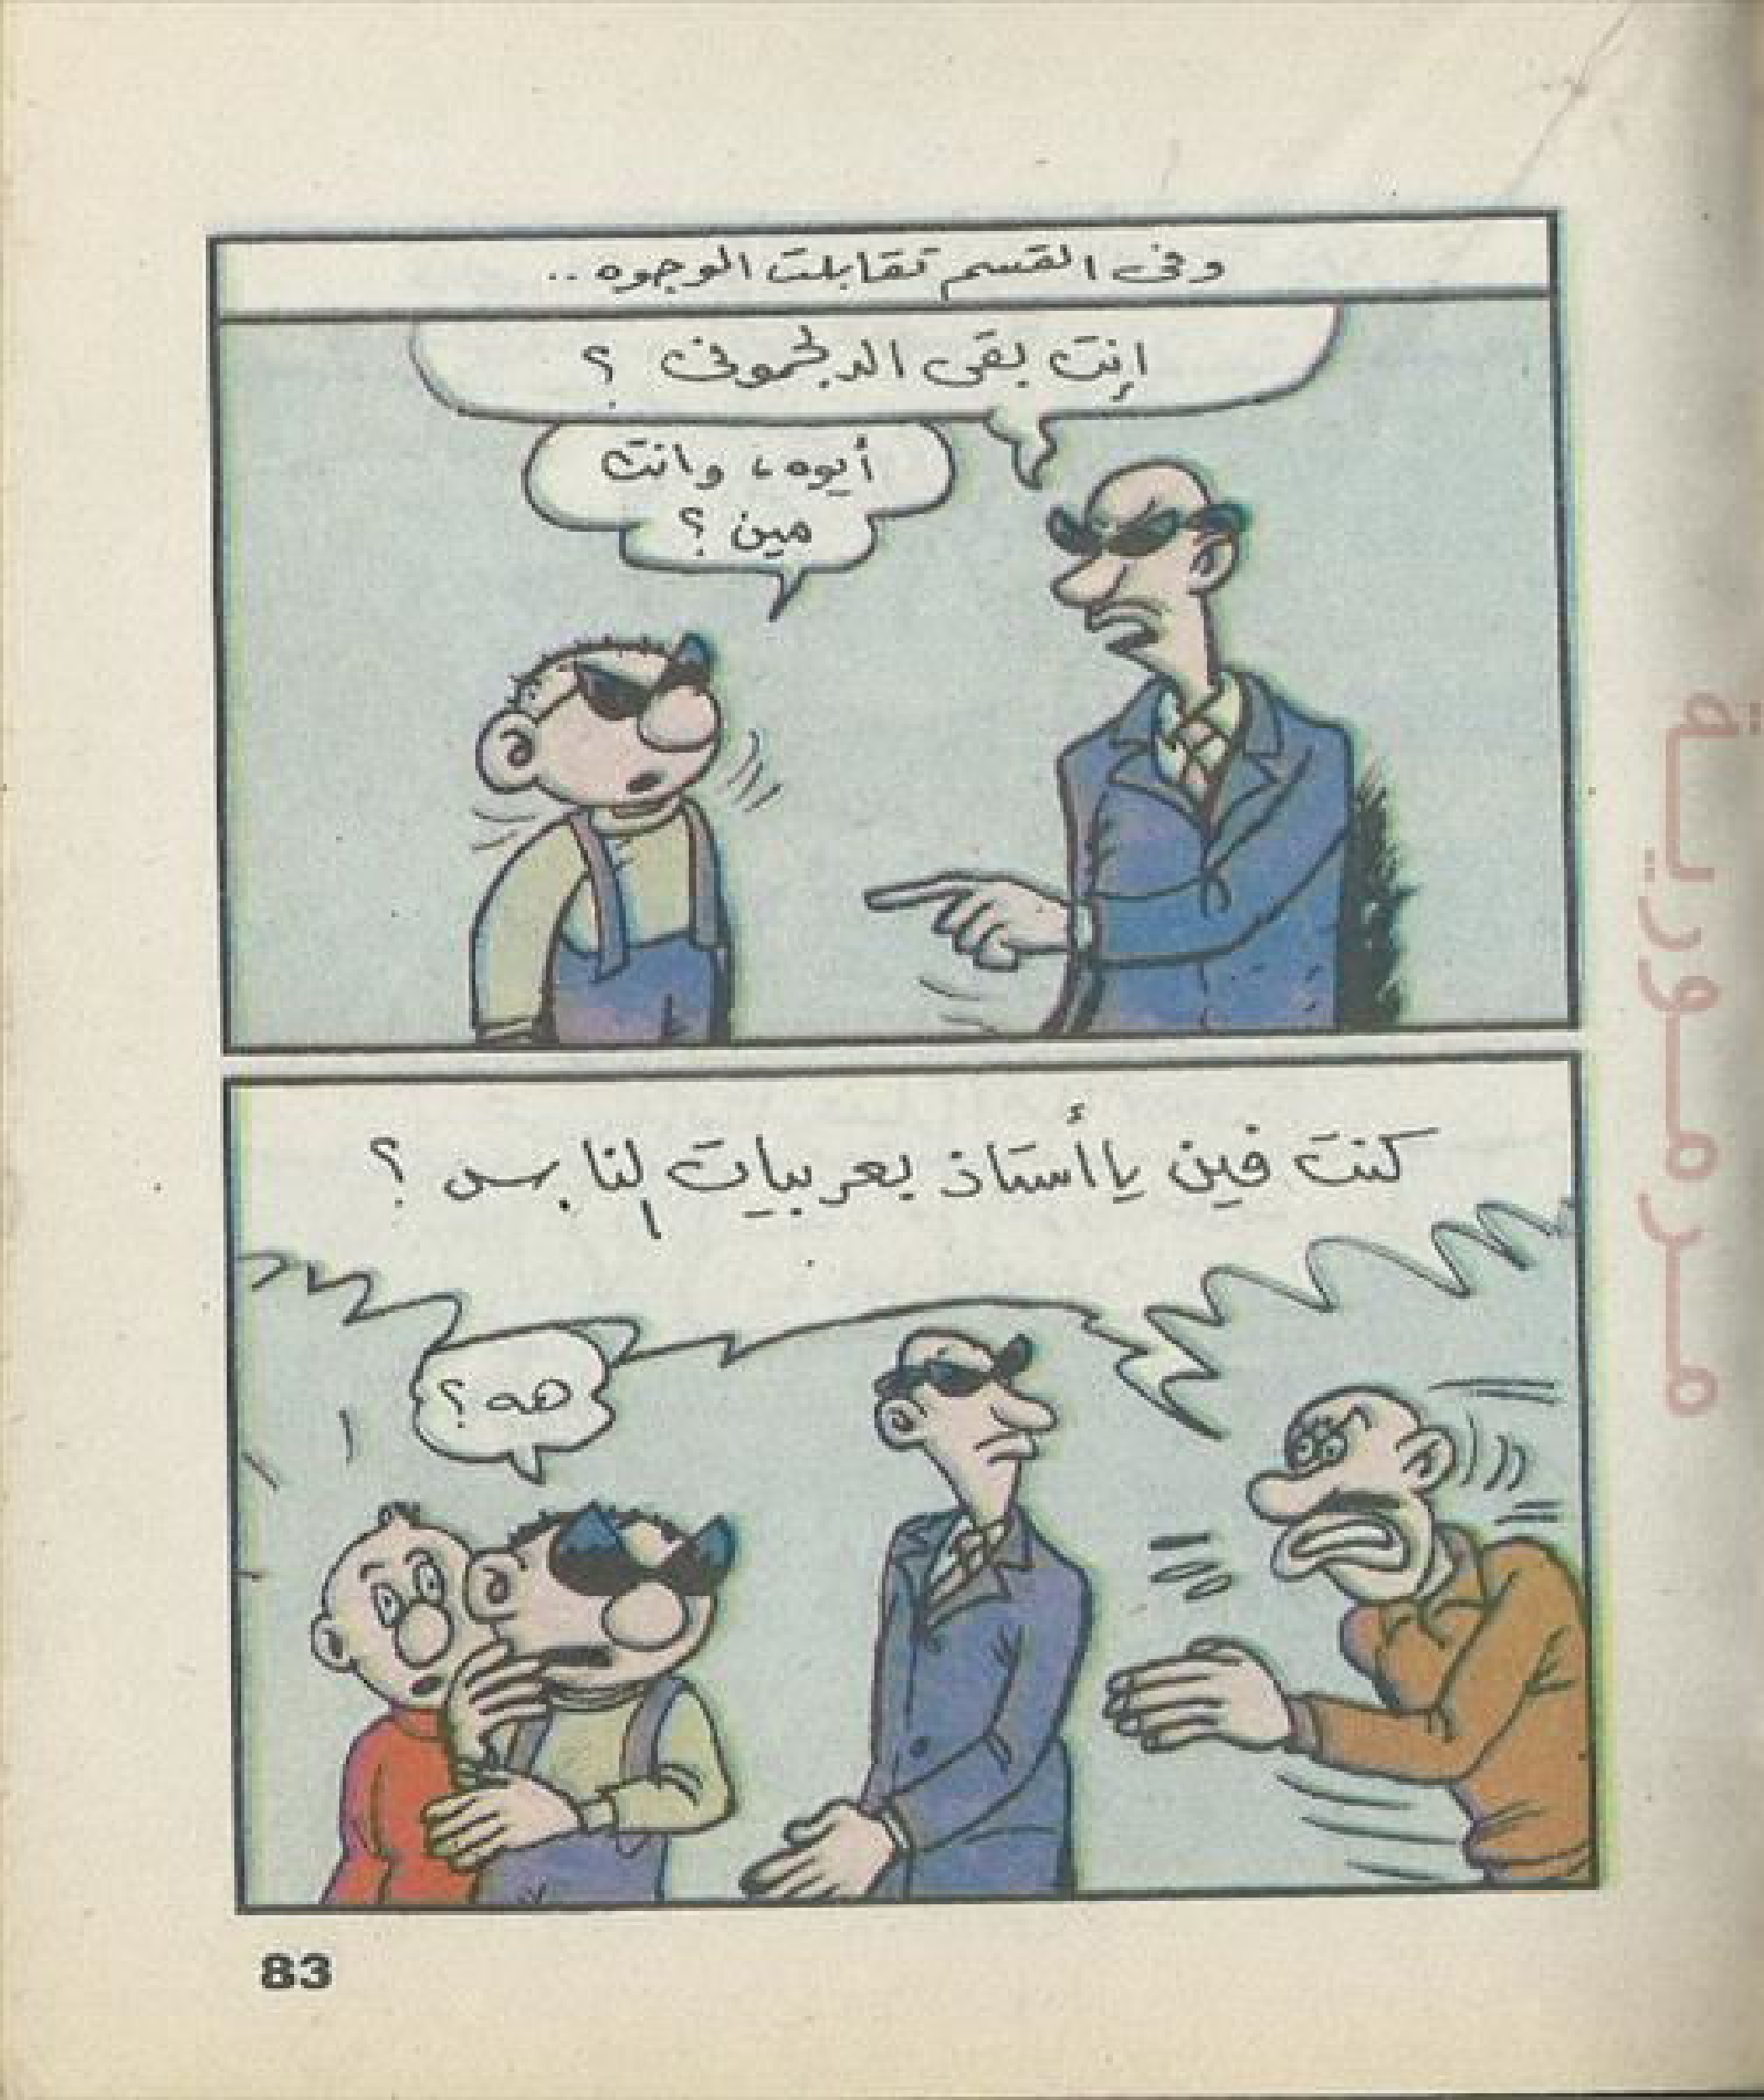 وفى القسم تقابلت الوجوه ..
إنت بقى الدلجمونى ؟
أيوه، وانت
مين ؟
كنت فين يا أُستاذ بعربيات الناس ؟
هه ؟
83